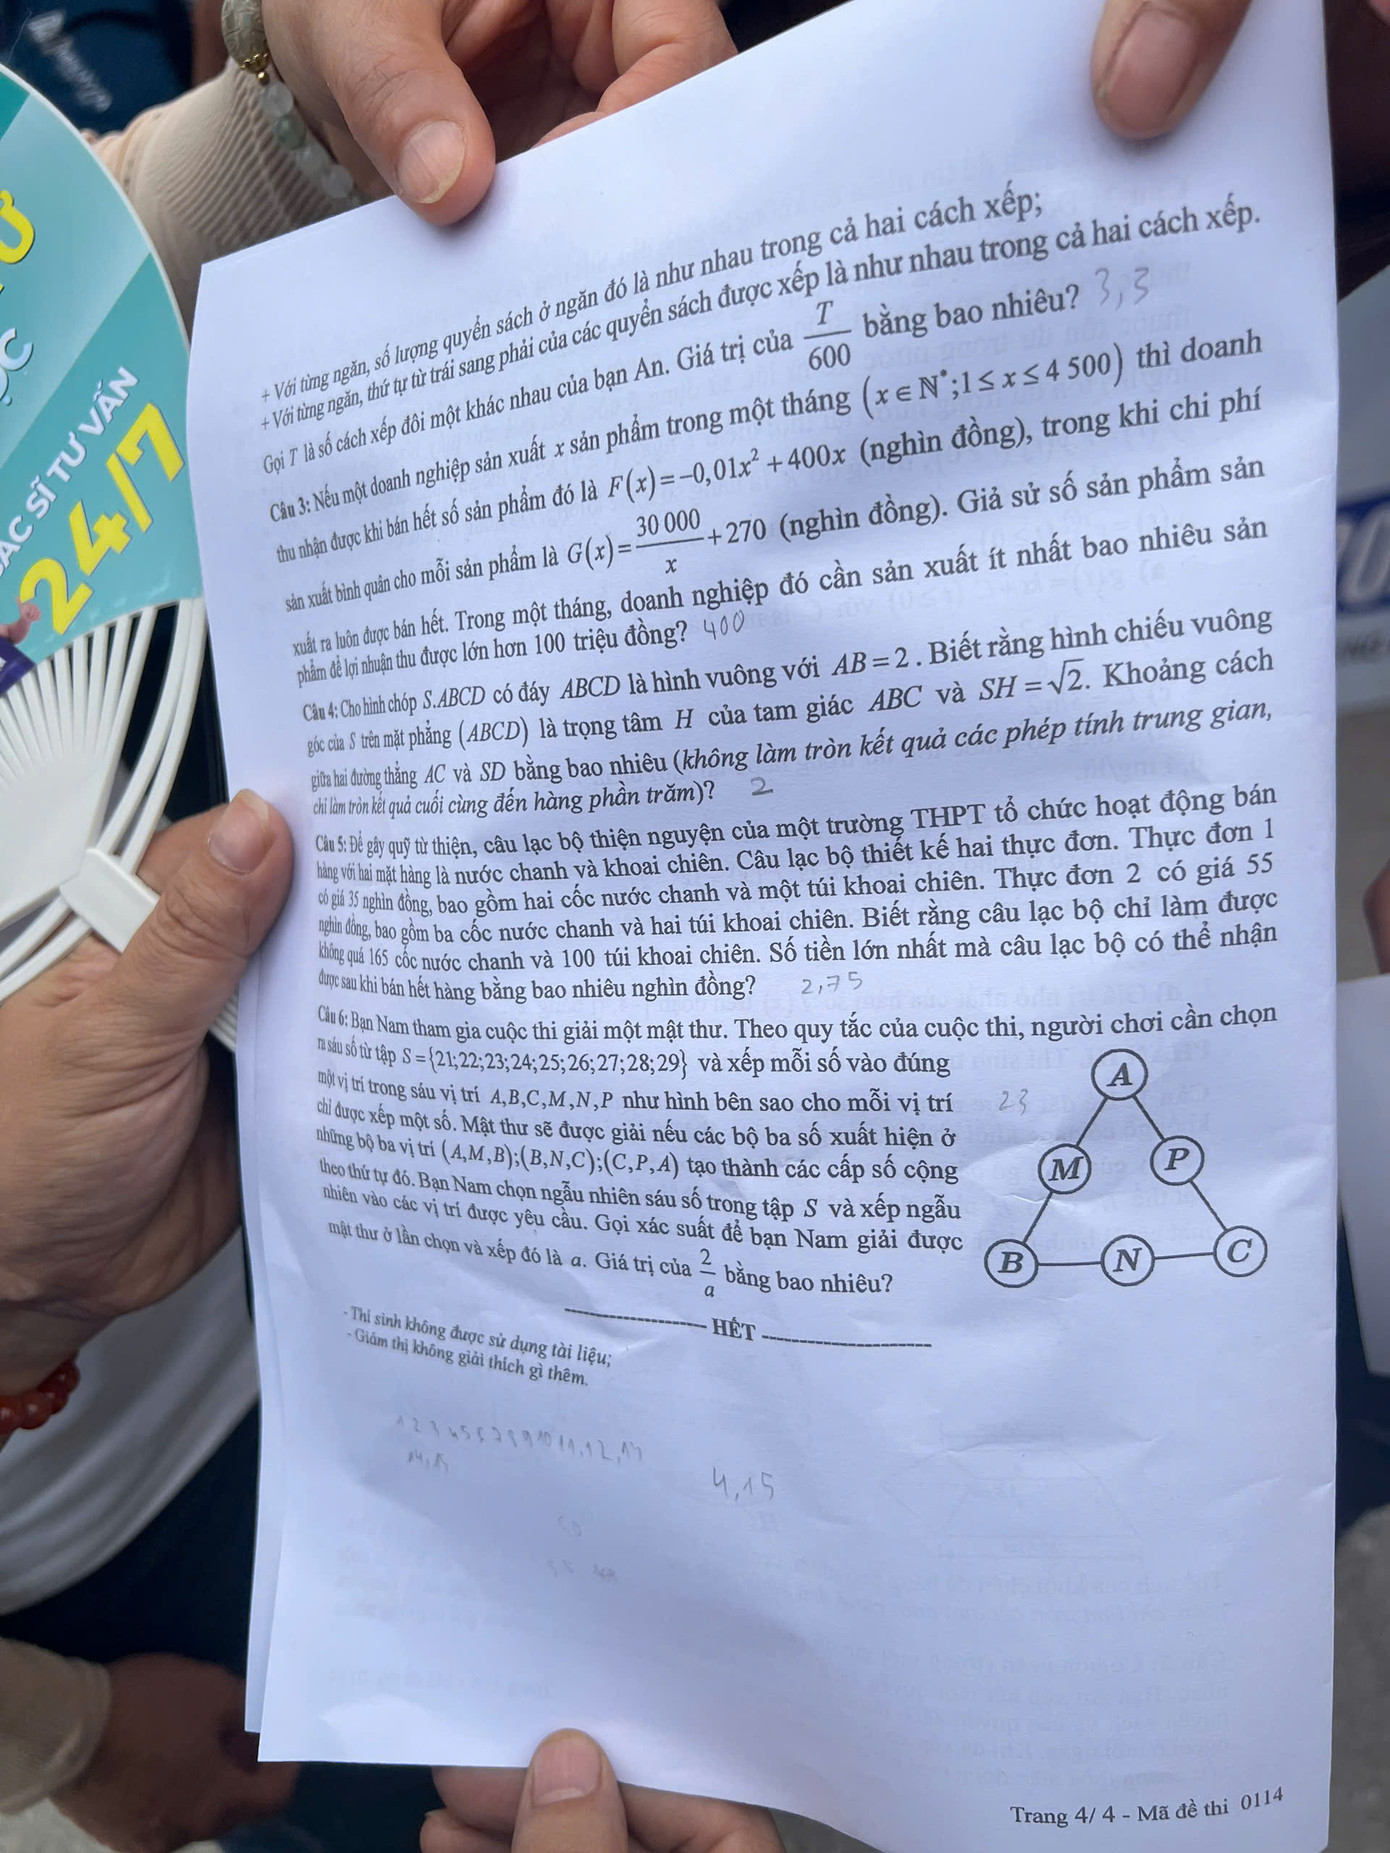 24/7
+ Với từng ngăn, số lượng quyển sách ở ngăn đó là như nhau trong cả hai cách xếp;
+ Với từng ngăn, thứ tự từ trái sang phải của các quyển sách được xếp là như nhau trong cả hai cách xếp.
Gọi T là số cách xếp đôi một khác nhau của bạn An. Giá trị của T/600 bằng bao nhiêu? 3,3
Câu 3: Nếu một doanh nghiệp sản xuất x sản phẩm trong một tháng (x ∈ ℕ*; 1 ≤ x ≤ 4 500) thì doanh
thu nhận được khi bán hết số sản phẩm đó là F(x) = −0,01x² + 400x (nghìn đồng), trong khi chi phí
sản xuất bình quân cho mỗi sản phẩm là G(x) = 30 000/x + 270 (nghìn đồng). Giả sử số sản phẩm sản
xuất ra luôn được bán hết. Trong một tháng, doanh nghiệp đó cần sản xuất ít nhất bao nhiêu sản
phẩm để lợi nhuận thu được lớn hơn 100 triệu đồng? 400
Câu 4: Cho hình chóp S.ABCD có đáy ABCD là hình vuông với AB = 2. Biết rằng hình chiếu vuông
góc của S trên mặt phẳng (ABCD) là trọng tâm H của tam giác ABC và SH = √2. Khoảng cách
giữa hai đường thẳng AC và SD bằng bao nhiêu (không làm tròn kết quả các phép tính trung gian,
chỉ làm tròn kết quả cuối cùng đến hàng phần trăm)? 2
Câu 5: Để gây quỹ từ thiện, câu lạc bộ thiện nguyện của một trường THPT tổ chức hoạt động bán
hàng với hai mặt hàng là nước chanh và khoai chiên. Câu lạc bộ thiết kế hai thực đơn. Thực đơn 1
có giá 35 nghìn đồng, bao gồm hai cốc nước chanh và một túi khoai chiên. Thực đơn 2 có giá 55
nghìn đồng, bao gồm ba cốc nước chanh và hai túi khoai chiên. Biết rằng câu lạc bộ chỉ làm được
không quá 165 cốc nước chanh và 100 túi khoai chiên. Số tiền lớn nhất mà câu lạc bộ có thể nhận
được sau khi bán hết hàng bằng bao nhiêu nghìn đồng? 2,75
Câu 6: Bạn Nam tham gia cuộc thi giải một mật thư. Theo quy tắc của cuộc thi, người chơi cần chọn
ra sáu số từ tập S = {21;22;23;24;25;26;27;28;29} và xếp mỗi số vào đúng
một vị trí trong sáu vị trí A,B,C,M,N,P như hình bên sao cho mỗi vị trí 23
chỉ được xếp một số. Mật thư sẽ được giải nếu các bộ ba số xuất hiện ở
những bộ ba vị trí (A,M,B);(B,N,C);(C,P,A) tạo thành các cấp số cộng
theo thứ tự đó. Bạn Nam chọn ngẫu nhiên sáu số trong tập S và xếp ngẫu
nhiên vào các vị trí được yêu cầu. Gọi xác suất để bạn Nam giải được
mật thư ở lần chọn và xếp đó là a. Giá trị của 2/a bằng bao nhiêu?
A
M P
B N C
HẾT
- Thí sinh không được sử dụng tài liệu;
- Giám thị không giải thích gì thêm.
4,15
Trang 4/ 4 - Mã đề thi 0114